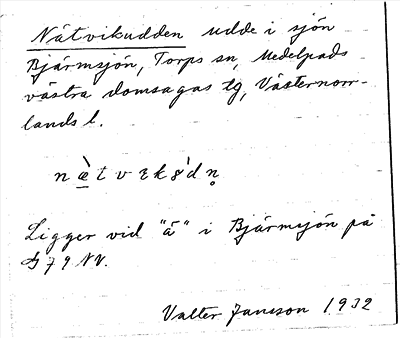 Nätvikudden udde i sjön
Bjärmsjön, Torps sn, Medelpads
västra domsagas tg, Västernorr-
lands l.
næ̀tvɛk8̍dn̥
Ligger vid "ä" i Bjärmsjön på
79 NV.
Valter Jansson 1932